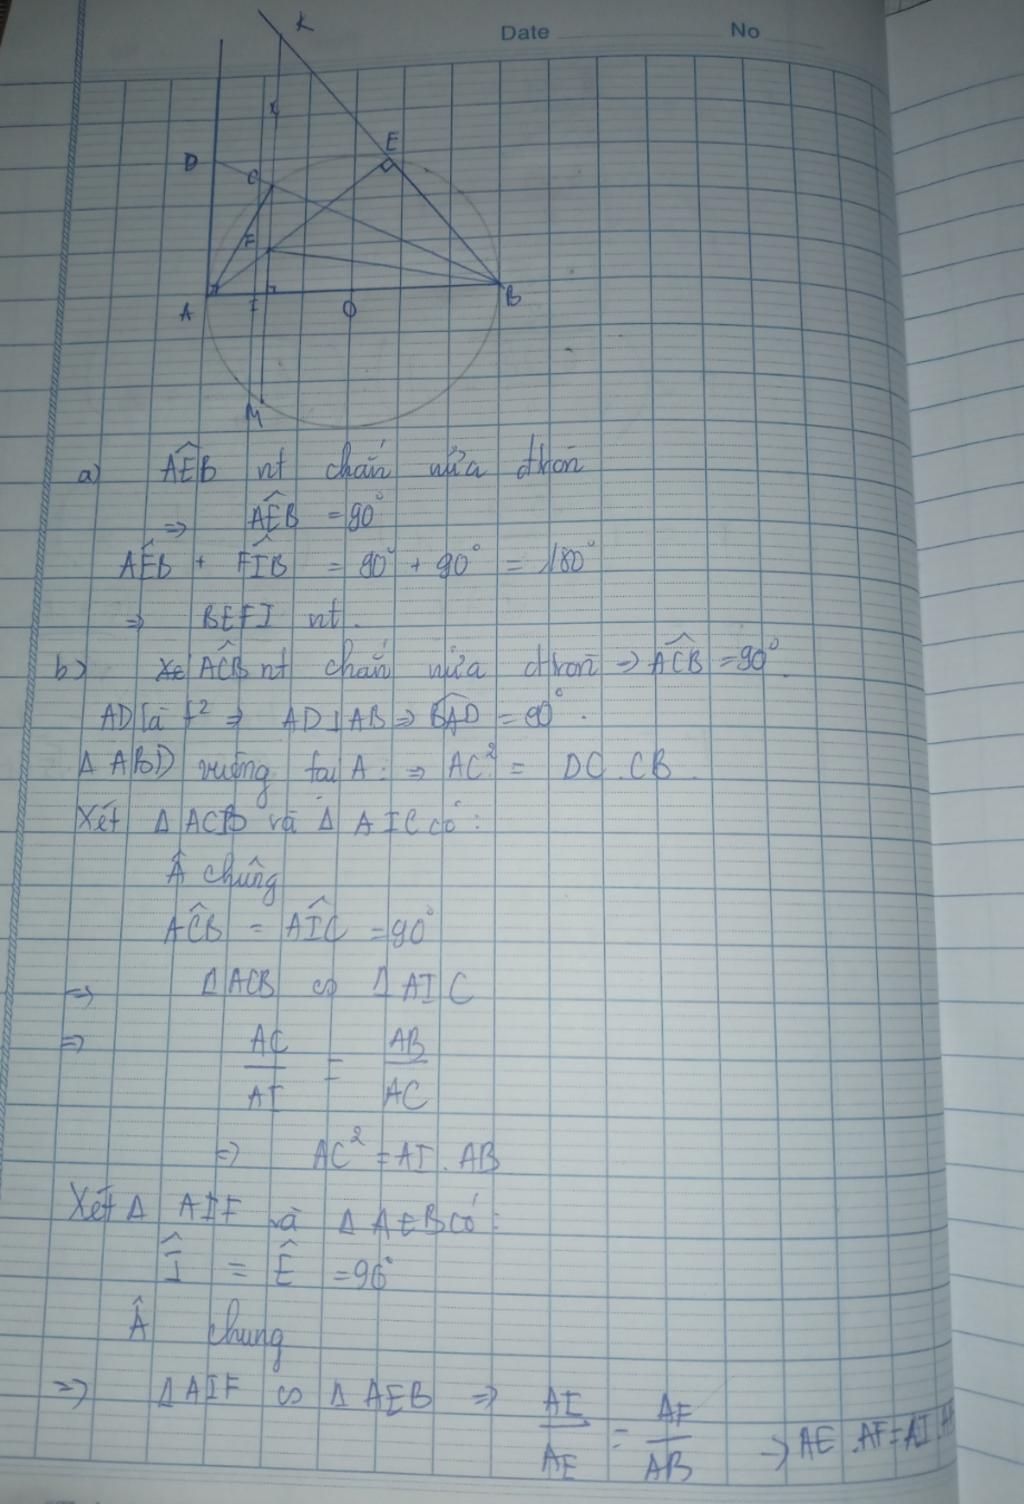 Date No
K
D
C
E
F
A
I
O
B
M
a) AÊB nt chắn nửa đtròn
=> AÊB = 90°
AÊB + FÎB = 90° + 90° = 180°
=> BEFI nt.
b) AĈB nt chắn nửa đtròn => AĈB = 90°.
AD là t² => AD⊥AB => BÂD = 90°.
Δ ABD vuông tại A: => AC² = DC.CB.
Xét Δ ACB và Δ AIC có:
Â chung
AĈB = AÎC = 90°
=> ΔACB ∽ ΔAIC
=> AC/AI = AB/AC
=> AC² = AI.AB
Xét Δ AIF và Δ AEB có:
Î = Ê = 90°
Â chung
=> ΔAIF ∽ ΔAEB => AI/AE = AF/AB => AE.AF=AI.AB